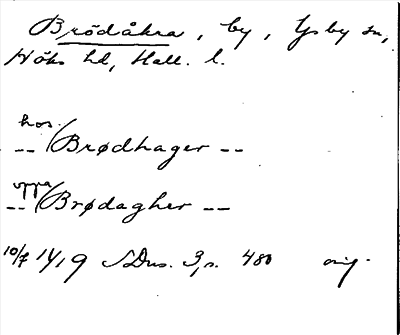 Brödåkra, by, Ysby sn,
Höks hd, Hall. l.
hos.
-- /Brødhager --
uppa
-- /Brødagher --
10/7 1419 SDns. 3, s. 480 orig.